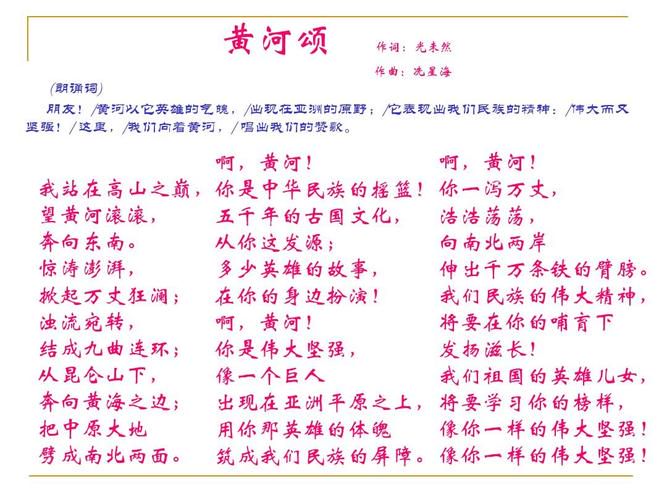 黄河颂
作词：光未然
作曲：冼星海
(朗诵词)
朋友！/黄河以它英雄的气魄，/出现在亚洲的原野；/它表现出我们民族的精神：/伟大而又
坚强！/这里，/我们向着黄河，/唱出我们的赞歌。
我站在高山之巅，
望黄河滚滚，
奔向东南。
惊涛澎湃，
掀起万丈狂澜；
浊流宛转，
结成九曲连环；
从昆仑山下，
奔向黄海之边；
把中原大地
劈成南北两面。
啊，黄河！
你是中华民族的摇篮！
五千年的古国文化，
从你这发源；
多少英雄的故事，
在你的身边扮演！
啊，黄河！
你是伟大坚强，
像一个巨人
出现在亚洲平原之上，
用你那英雄的体魄
筑成我们民族的屏障。
啊，黄河！
你一泻万丈，
浩浩荡荡，
向南北两岸
伸出千万条铁的臂膀。
我们民族的伟大精神，
将要在你的哺育下
发扬滋长！
我们祖国的英雄儿女，
将要学习你的榜样，
像你一样的伟大坚强！
像你一样的伟大坚强！